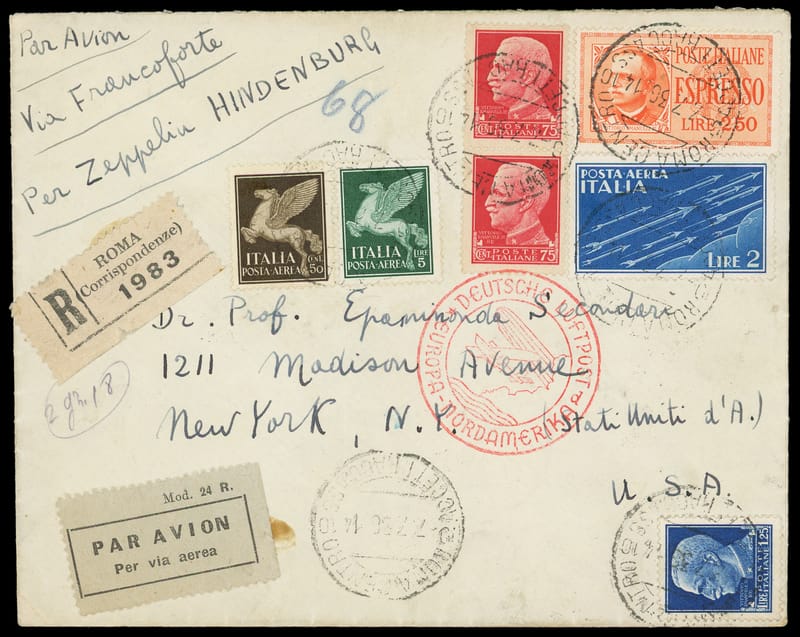 Par Avion
Via Francoforte
Per Zeppelin HINDENBURG
68
CENT POSTE ITALIANE 75
POSTE ITALIANE
ESPRESSO
LIRE 2,50
ITALIA
POSTA-AEREA
CENT. 50
ITALIA
POSTA-AEREA
LIRE 5
CENT POSTE ITALIANE 75
POSTA AEREA
ITALIA
LIRE 2
R
ROMA
(Corrispondenze)
1983
DEUTSCHE LUFTPOST
EUROPA-NORDAMERIKA
Dr. Prof. Epaminonda Secondari
1211 Madison Avenue
New York, N.Y. (Stati Uniti d'A.)
U.S.A.
Mod. 24 R.
PAR AVION
Per via aerea
7.7.36.14
LIRE POSTE ITALIANE 1,25